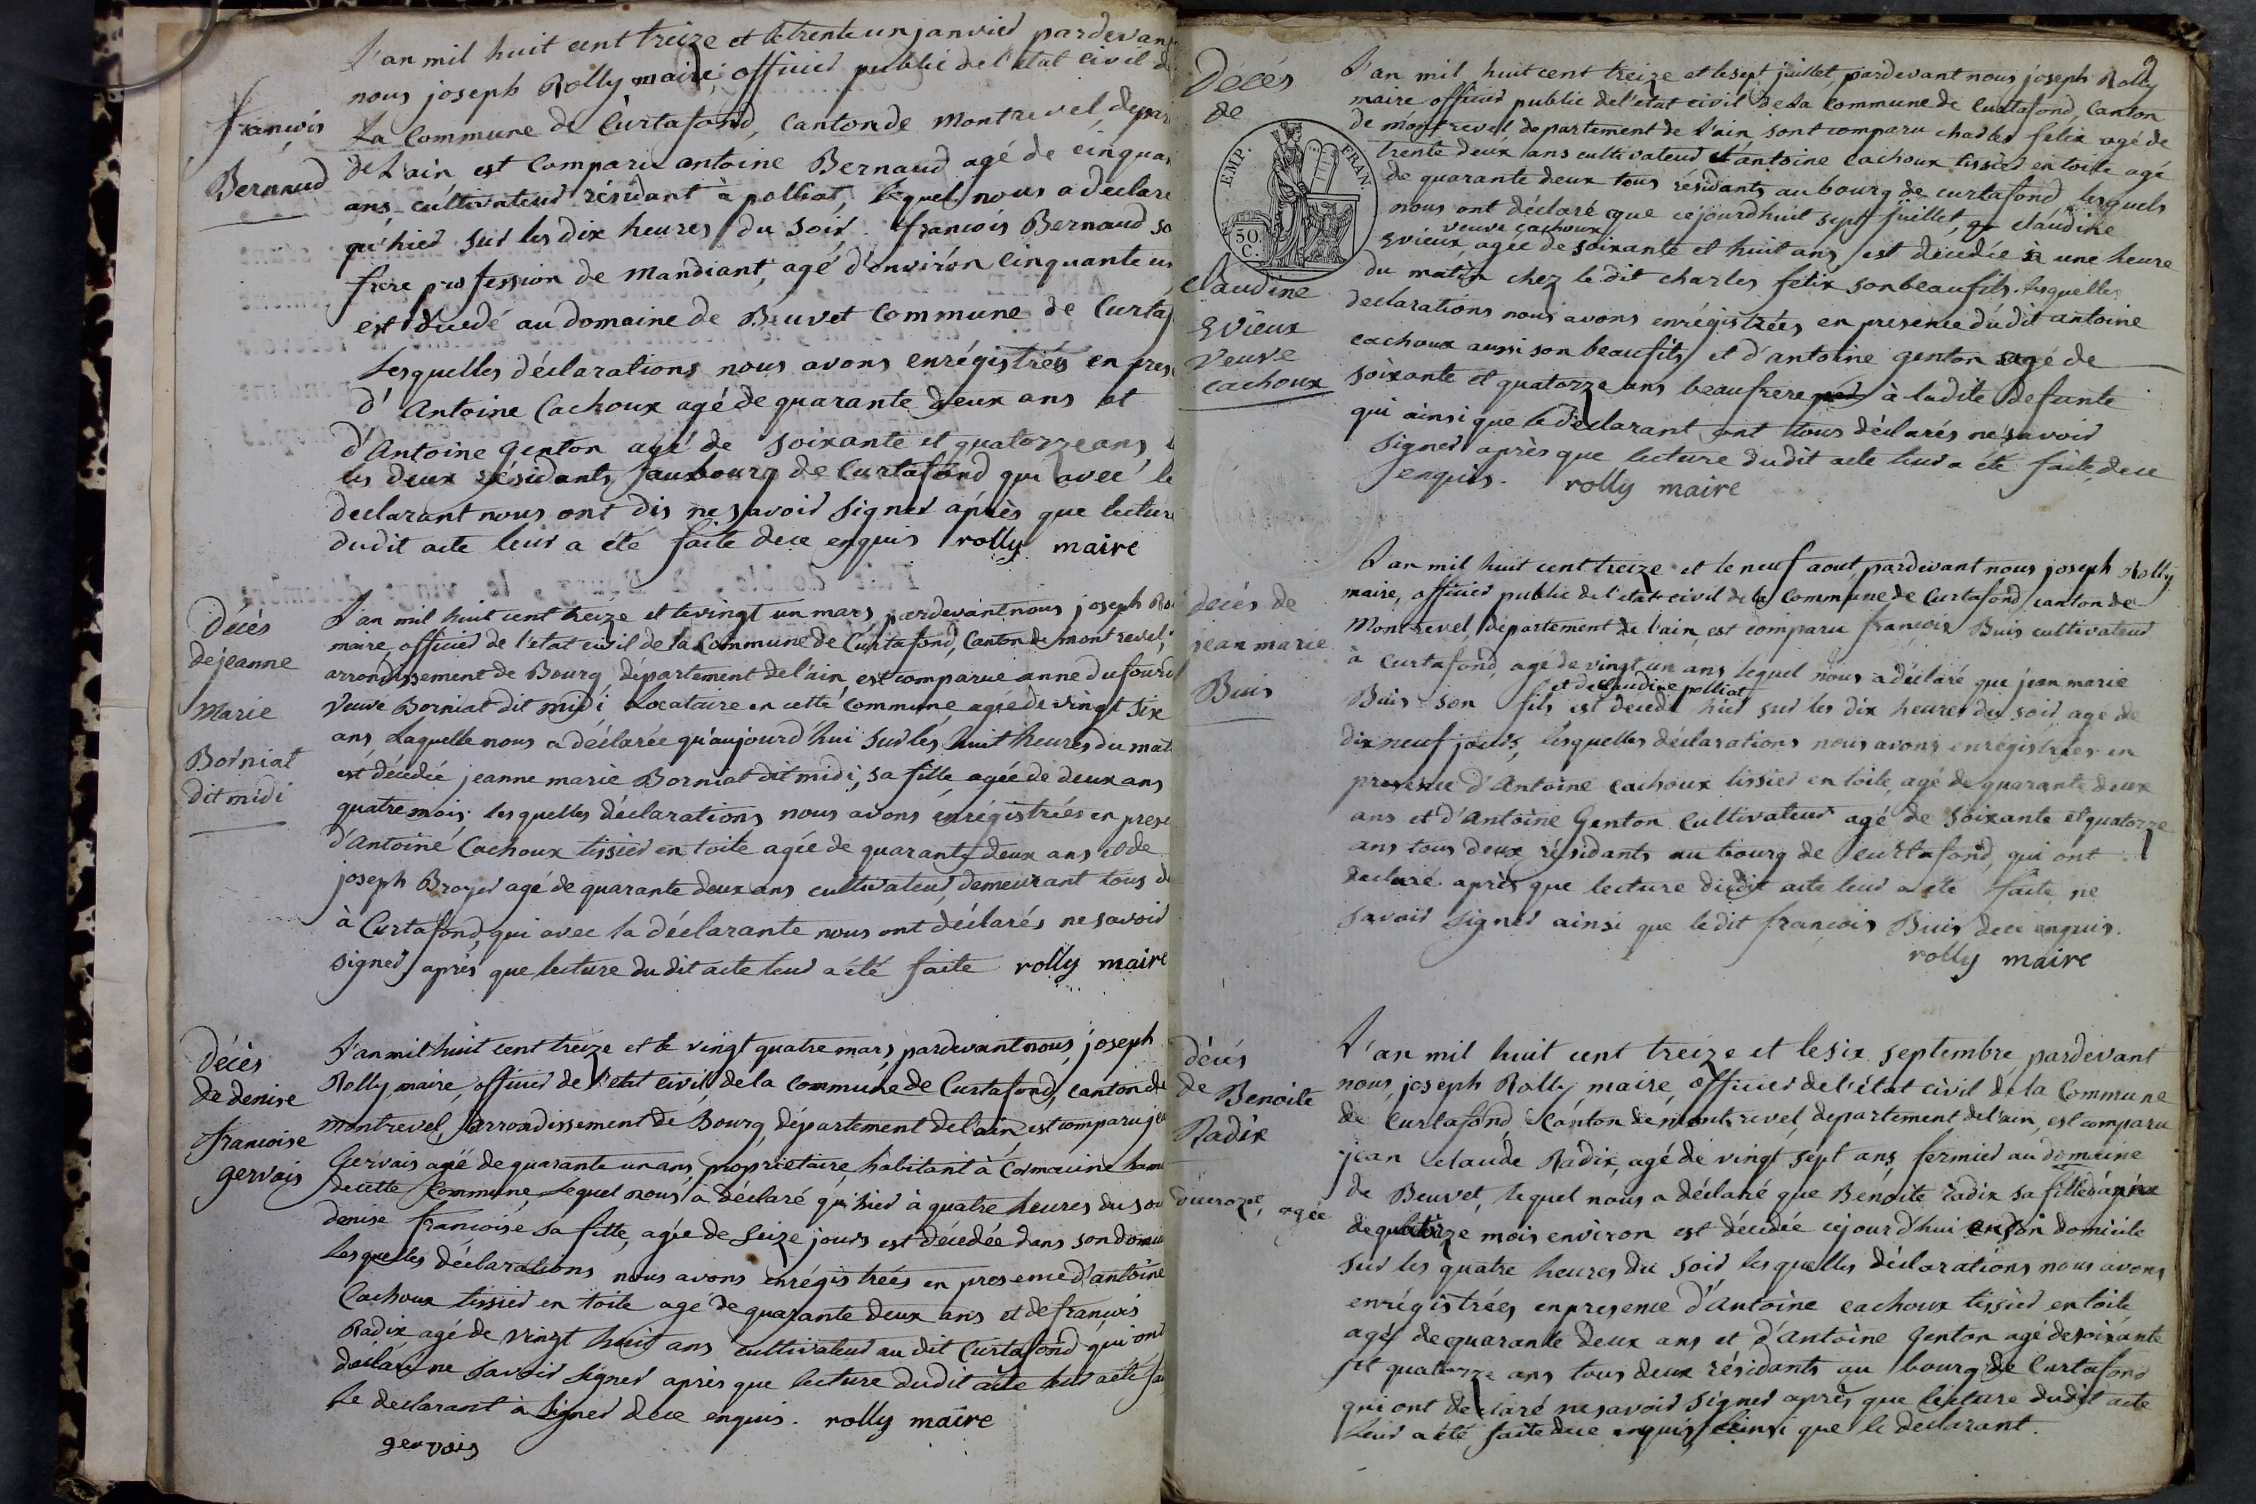 françois
Bernaud
L'an mil huit cent treize et le trente un janvier pardevant
nous joseph Rolly maire, officier public de l'etat civil d
La Commune de Curtafond, Canton de Montrevel, depar
de L'ain est Comparu antoine Bernaud agé de cinquan
ans cultivateur résidant à polliat, lequel nous a déclaré
qu'hier sur les dix heures du soir françois Bernaud so
frere profession de Mandiant, agé d'environ cinquante un
est décédé au domaine de Beuvet Commune de Curtaf
Lesquelles déclarations nous avons enrégistrées en pres
d'Antoine Cachoux agé de quarante deux ans et
d'Antoine Genton agé de soixante et quatorze ans,
les deux résidants au bourg de Curtafond qui avec le
declarant nous ont dis ne savoir signer après que lecture
dudit acte leur a été faite de ce enquis rolly maire
Décès
de jeanne
Marie
Borniat
dit midi
L'an mil huit cent treize et le vingt un mars, pardevant nous joseph Ro
maire, officier de l'etat civil de la Commune de Curtafond, Canton de montrevel,
arrondissement de Bourg, département de l'ain, est comparue anne dufour
Veuve Borniat dit midi Locataire en cette Commune agée de vingt six
ans Laquelle nous a déclarée qu'aujourd'hui sur les huit heures du mat
est décédée jeanne marie Borniat dit midi, sa fille agée de deux ans
quatre mois lesquelles déclarations nous avons enrégistrées en prese
d'Antoine Cachoux tissier en toile agée de quarante deux ans et de
joseph Broyer agé de quarante deux ans cultivateur, demeurant tous d
à Curtafond, qui avec la déclarante nous ont déclarés ne savoir
signer, après que lecture du dit acte leur a été faite rolly maire
Décès
de denise
françoise
gervais
L'an mil huit cent treize et le vingt quatre mars, pardevant nous, joseph
Rolly, maire, officier de l'etat civil de la commune de Curtafond, canton de
montrevel, arrondissement de Bourg, département de l'ain est comparu je
Gervais agé de quarante un ans, propriétaire, habitant à Cormarine ham
de cette Commune, lequel nous a déclaré qu'hier à quatre heures du soi
denise françoise sa fille, agée de seize jours est décédée dans son domi
Lesquelles déclarations nous avons enrégistrées en presence d'antoine
Cachoux tissier en toile agé de quarante deux ans et de françois
Radix agé de vingt huit ans cultivateur au dit Curtafond qui ont
déclaré ne savoir signer après que lecture dudit acte leur a été fa
Le declarant a signer de ce enquis. rolly maire
gervais
Décés
de
EMP. FRAN.
50 C.
Claudine
Evieux
veuve
cachoux
L'an mil huit cent treize et le sept juillet, pardevant nous joseph Rolly
maire officier public de l'etat civil de La Commune de Curtafond, Canton
de montrevel, departement de L'ain, sont comparu charles felix agé de
trente deux ans cultivateur et antoine cachoux tissier en toile agé
de quarante deux tous résidants au bourg de curtafond, lesquels
nous ont déclaré que cejourd'huit sept juillet, claudine
veuve cachoux
Evieux, agée de soixante et huit ans, est décédée à une heure
du matin chez le dit charles felix son beaufils. lesquelles
declarations nous avons enrégistrées en presence dudit antoine
cachoux aussi son beaufils, et d'antoine genton agé de
soixante et quatorze ans beaufrere à ladite defunte
qui ainsi que le déclarant ont tous déclarés ne savoir
signer après que lecture dudit acte leur a été faite, de ce
enquis. rolly maire
decés de
jean marie
Buis
L'an mil huit cent treize et le neuf aout, pardevant nous joseph Rolly
maire, officier public de l'etat civil de la Commune de Curtafond, canton de
Montrevel, departement de l'ain, est comparu françois Buis cultivateur
à Curtafond, agé de vingt un ans, lequel nous a déclaré que jean marie
et de claudine polliat
Buis son fils, est decédé hier sur les dix heures du soir agé de
dix neuf jours, lesquelles déclarations nous avons enrégistrées en
presence d'Antoine cachoux tissier en toile, agé de quarante deux
ans et d'Antoine Genton Cultivateur agé de soixante et quatorze
ans tous deux résidants au bourg de Curtafond, qui ont
declaré après que lecture dudit acte leur a été faite, ne
savoir signer ainsi que le dit françois Buis de ce enquis.
rolly maire
décés
de Benoite
Radix
agée
L'an mil huit cent treize et le six septembre, pardevant
nous, joseph Rolly, maire, officier de l'état civil de la Commune
de Curtafond, Canton de montrevel, departement de l'ain, est comparu
jean claude Radix, agé de vingt sept ans, fermier au domaine
de Beuvet, lequel nous a déclaré que Benoite radix sa fille agée
de quatorze mois environ est décédée cejourd'hui en son domicile
sur les quatre heures du soir lesquelles déclarations nous avons
enrégistrées en presence d'Antoine cachoux tissier en toile
agé de quarante deux ans et d'Antoine Genton agé de soixante
et quatorze ans tous deux résidants au bourg de Curtafond
qui ont declaré ne savoir signer après que lecture dudit acte
leur a été faite de ce enquis, ainsi que le declarant.